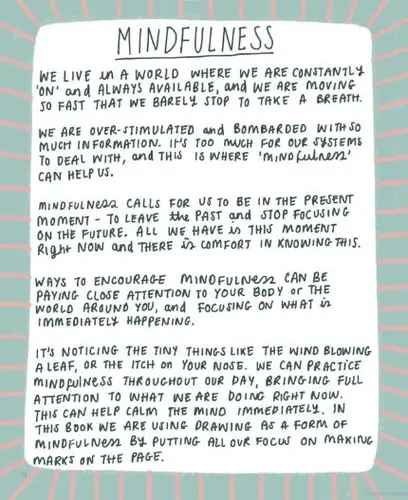 MINDFULNESS
WE LIVE in A WORLD WHERE WE ARE CONSTANTLY
'ON' and ALWAYS AVAILABLE, and WE ARE MOVING
SO FAST THAT WE BARELY STOP TO TAKE A BREATH.
WE ARE OVER-STIMULATED and BOMBARDED WITH SO
MUCH INFORMATION. IT'S TOO MUCH FOR OUR SYSTEMS
TO DEAL WITH, and THIS IS WHERE 'mindfulness'
CAN HELP US.
MINDFULNESS CALLS FOR US TO BE IN THE PRESENT
MOMENT - TO LEAVE the PAST and STOP FOCUSING
ON THE FUTURE. ALL WE HAVE is THIS MOMENT
Right NOW and THERE is COMFORT IN KNOWING THIS.
WAYS TO ENCOURAGE MINDFULNESS CAN BE
PAYING CLOSE ATTENTION TO YOUR BODY or THE
WORLD AROUND YOU, and FOCUSING ON WHAT is
IMMEDIATELY HAPPENING.
IT'S NOTICING THE TINY THINGS LIKE THE WIND BLOWING
A LEAF, OR THE ITCH on YOUR NOSE. WE CAN PRACTICE
MINDFULNESS THROUGHOUT OUR DAY, BRINGING FULL
ATTENTION TO WHAT WE ARE DOING RIGHT NOW.
THIS CAN HELP CALM THE MIND IMMEDIATELY. IN
THIS BOOK WE ARE USING DRAWING AS A FORM OF
MINDFULNESS BY PUTTING ALL OUR FOCUS ON MAKING
MARKS ON THE PAGE.